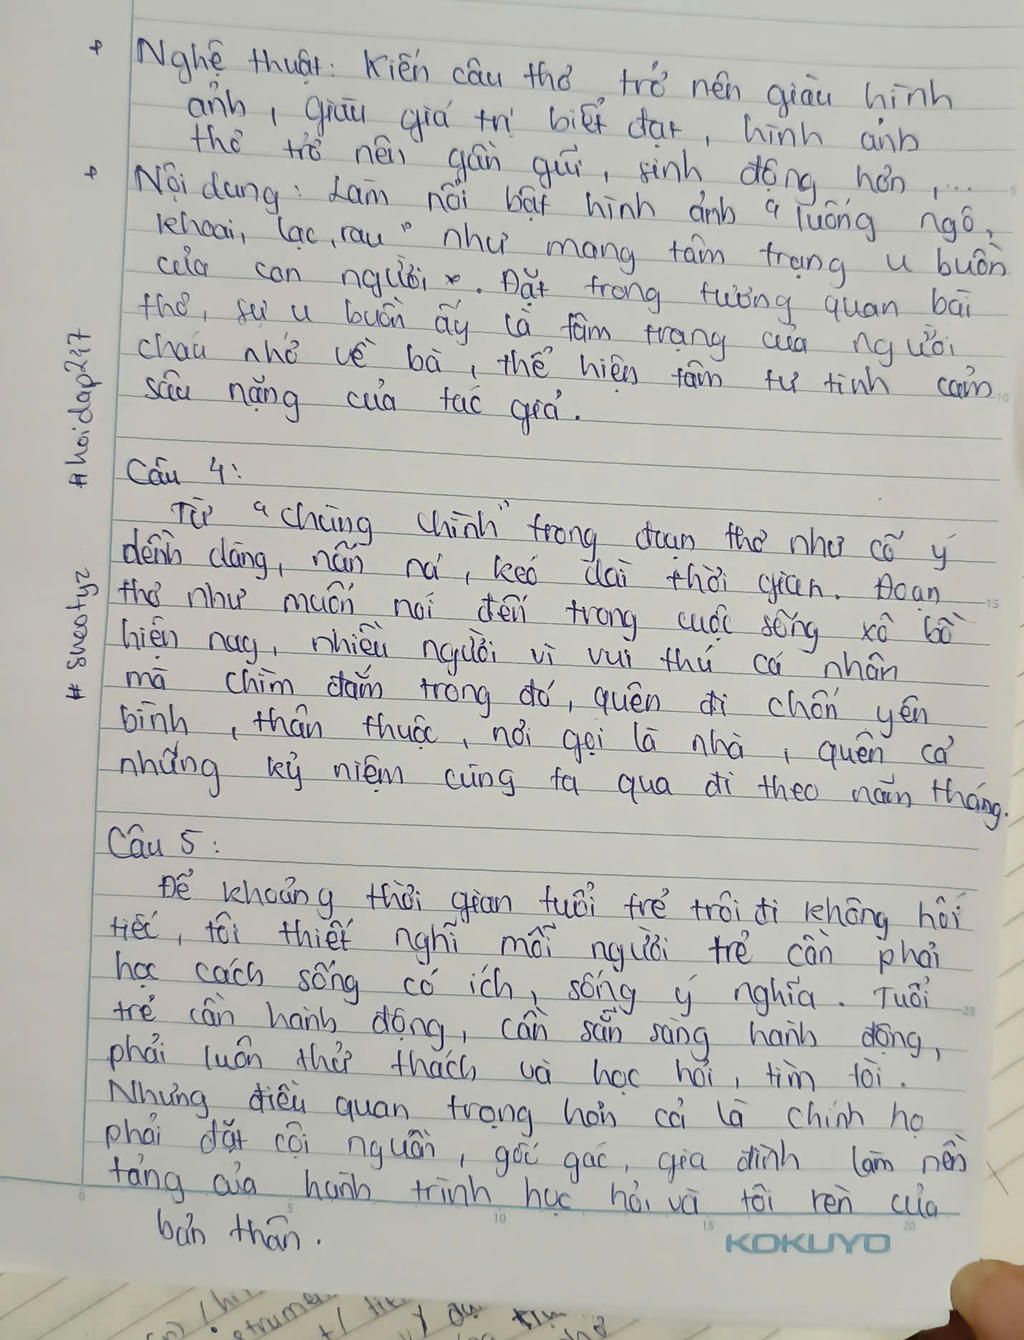 + Nghệ thuật: Kiến câu thơ trở nên giàu hình
ảnh, giàu giá trị biểt đạt, hình ảnh
thơ trở nên gần gũi, sinh động hơn,...
+ Nội dung: Làm nổi bật hình ảnh "luống ngô,
khoai, lạc, rau" như mang tâm trạng u buồn
của con người. Đặt trong tương quan bài
thơ, sự u buồn ấy là tâm trạng của người
cháu nhớ về bà, thể hiện tâm tư tình cảm
sâu nặng của tác giả.
#hoidap247
Câu 4:
Từ "chùng chình" trong đoạn thơ như cố ý
dềnh dàng, nấn ná, kéo dài thời gian. Đoạn
thơ như muốn nói đến trong cuộc sống xô bồ
hiện nay, nhiều người vì vui thú cá nhân
mà chìm đắm trong đó, quên đi chốn yên
bình, thân thuộc, nơi gọi là nhà, quên cả
những kỷ niệm cùng ta qua đi theo năm tháng.
Câu 5:
Để khoảng thời gian tuổi trẻ trôi đi không hối
tiếc, tôi thiết nghĩ mỗi người trẻ cần phải
học cách sống có ích, sống ý nghĩa. Tuổi
trẻ cần hành động, cần sẵn sàng hành động,
phải luôn thử thách và học hỏi, tìm tòi.
Nhưng điều quan trọng hơn cả là chính họ
phải đặt cội nguồn, gốc gác, gia đình làm nền
tảng của hành trình học hỏi và tôi rèn của
bản thân.
5
10
15
25
5
10
15
20
KOKUYO